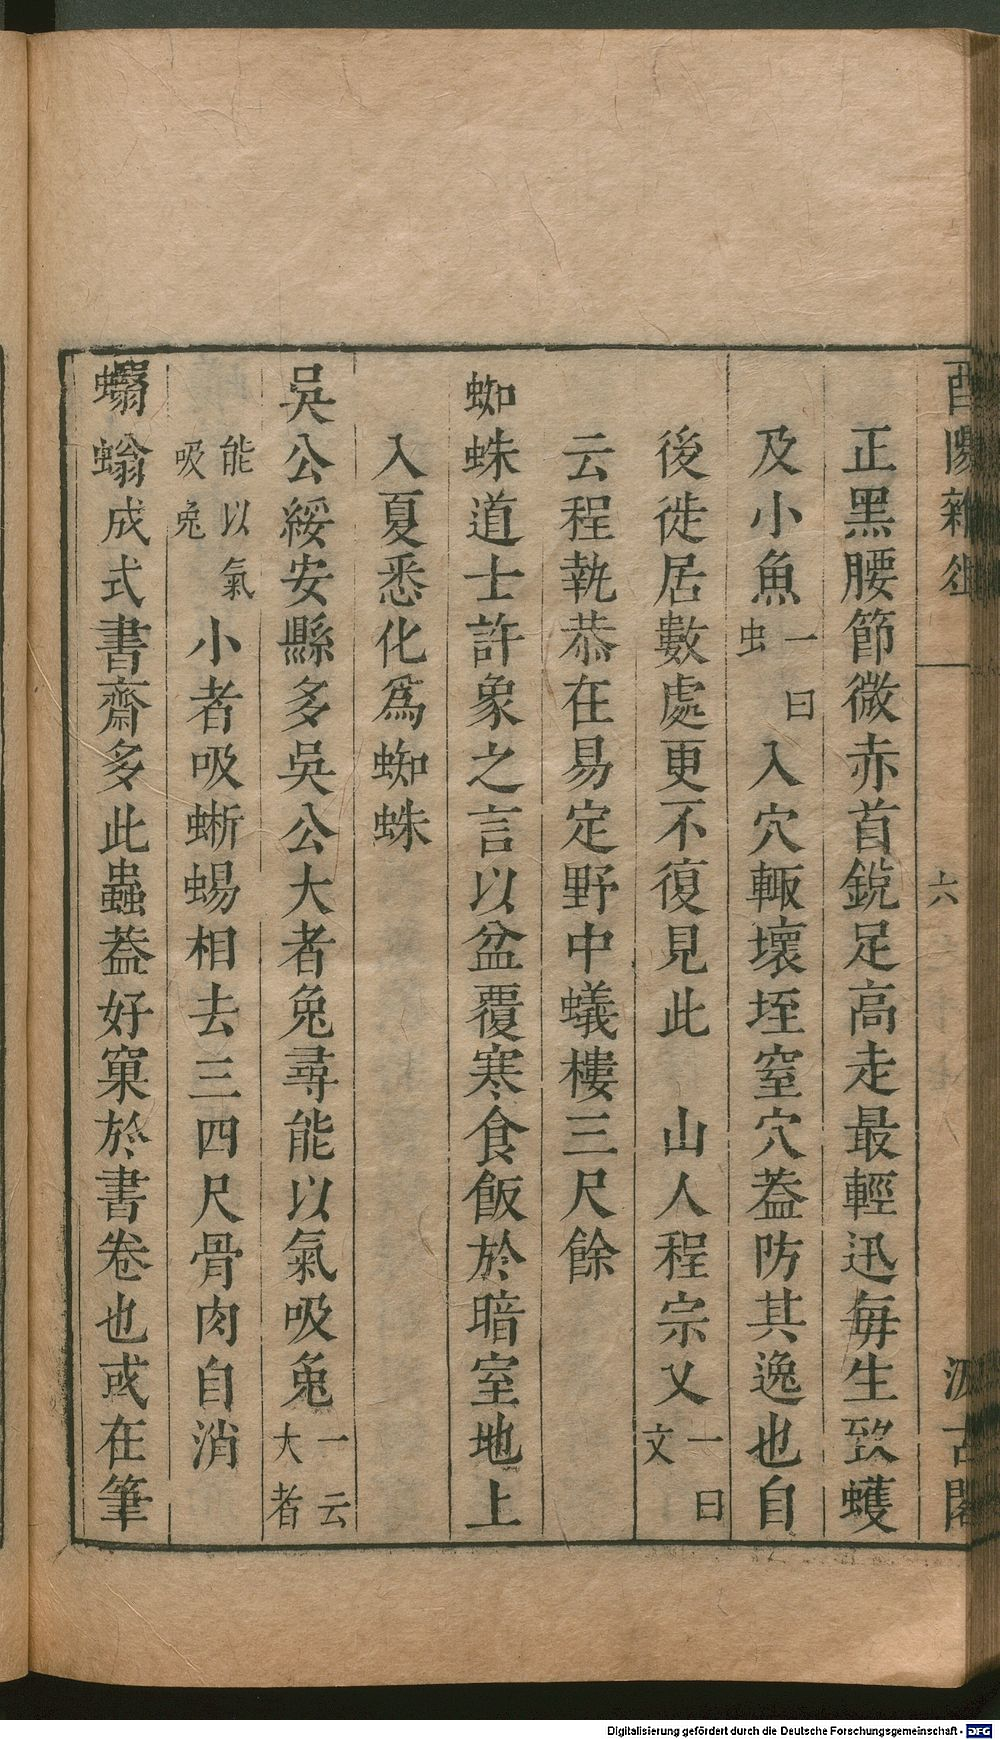 酉陽雜俎
六
汲古閣
正黑腰節微赤首銳足高走最輕迅每生致蠖
及小魚一曰虫入穴輙壞垤窒穴葢防其逸也自
後徙居數處更不復見此　山人程宗乂一曰文
云程執恭在易定野中蟻樓三尺餘
蜘蛛道士許象之言以盆覆寒食飯於暗室地上
入夏悉化爲蜘蛛
吳公綏安縣多吳公大者兔尋能以氣吸兔一云大者
能以氣吸兔小者吸蜥蜴相去三四尺骨肉自消
蠮螉成式書齋多此蟲葢好窠於書卷也或在筆
Digitalisierung gefördert durch die Deutsche Forschungsgemeinschaft - DFG